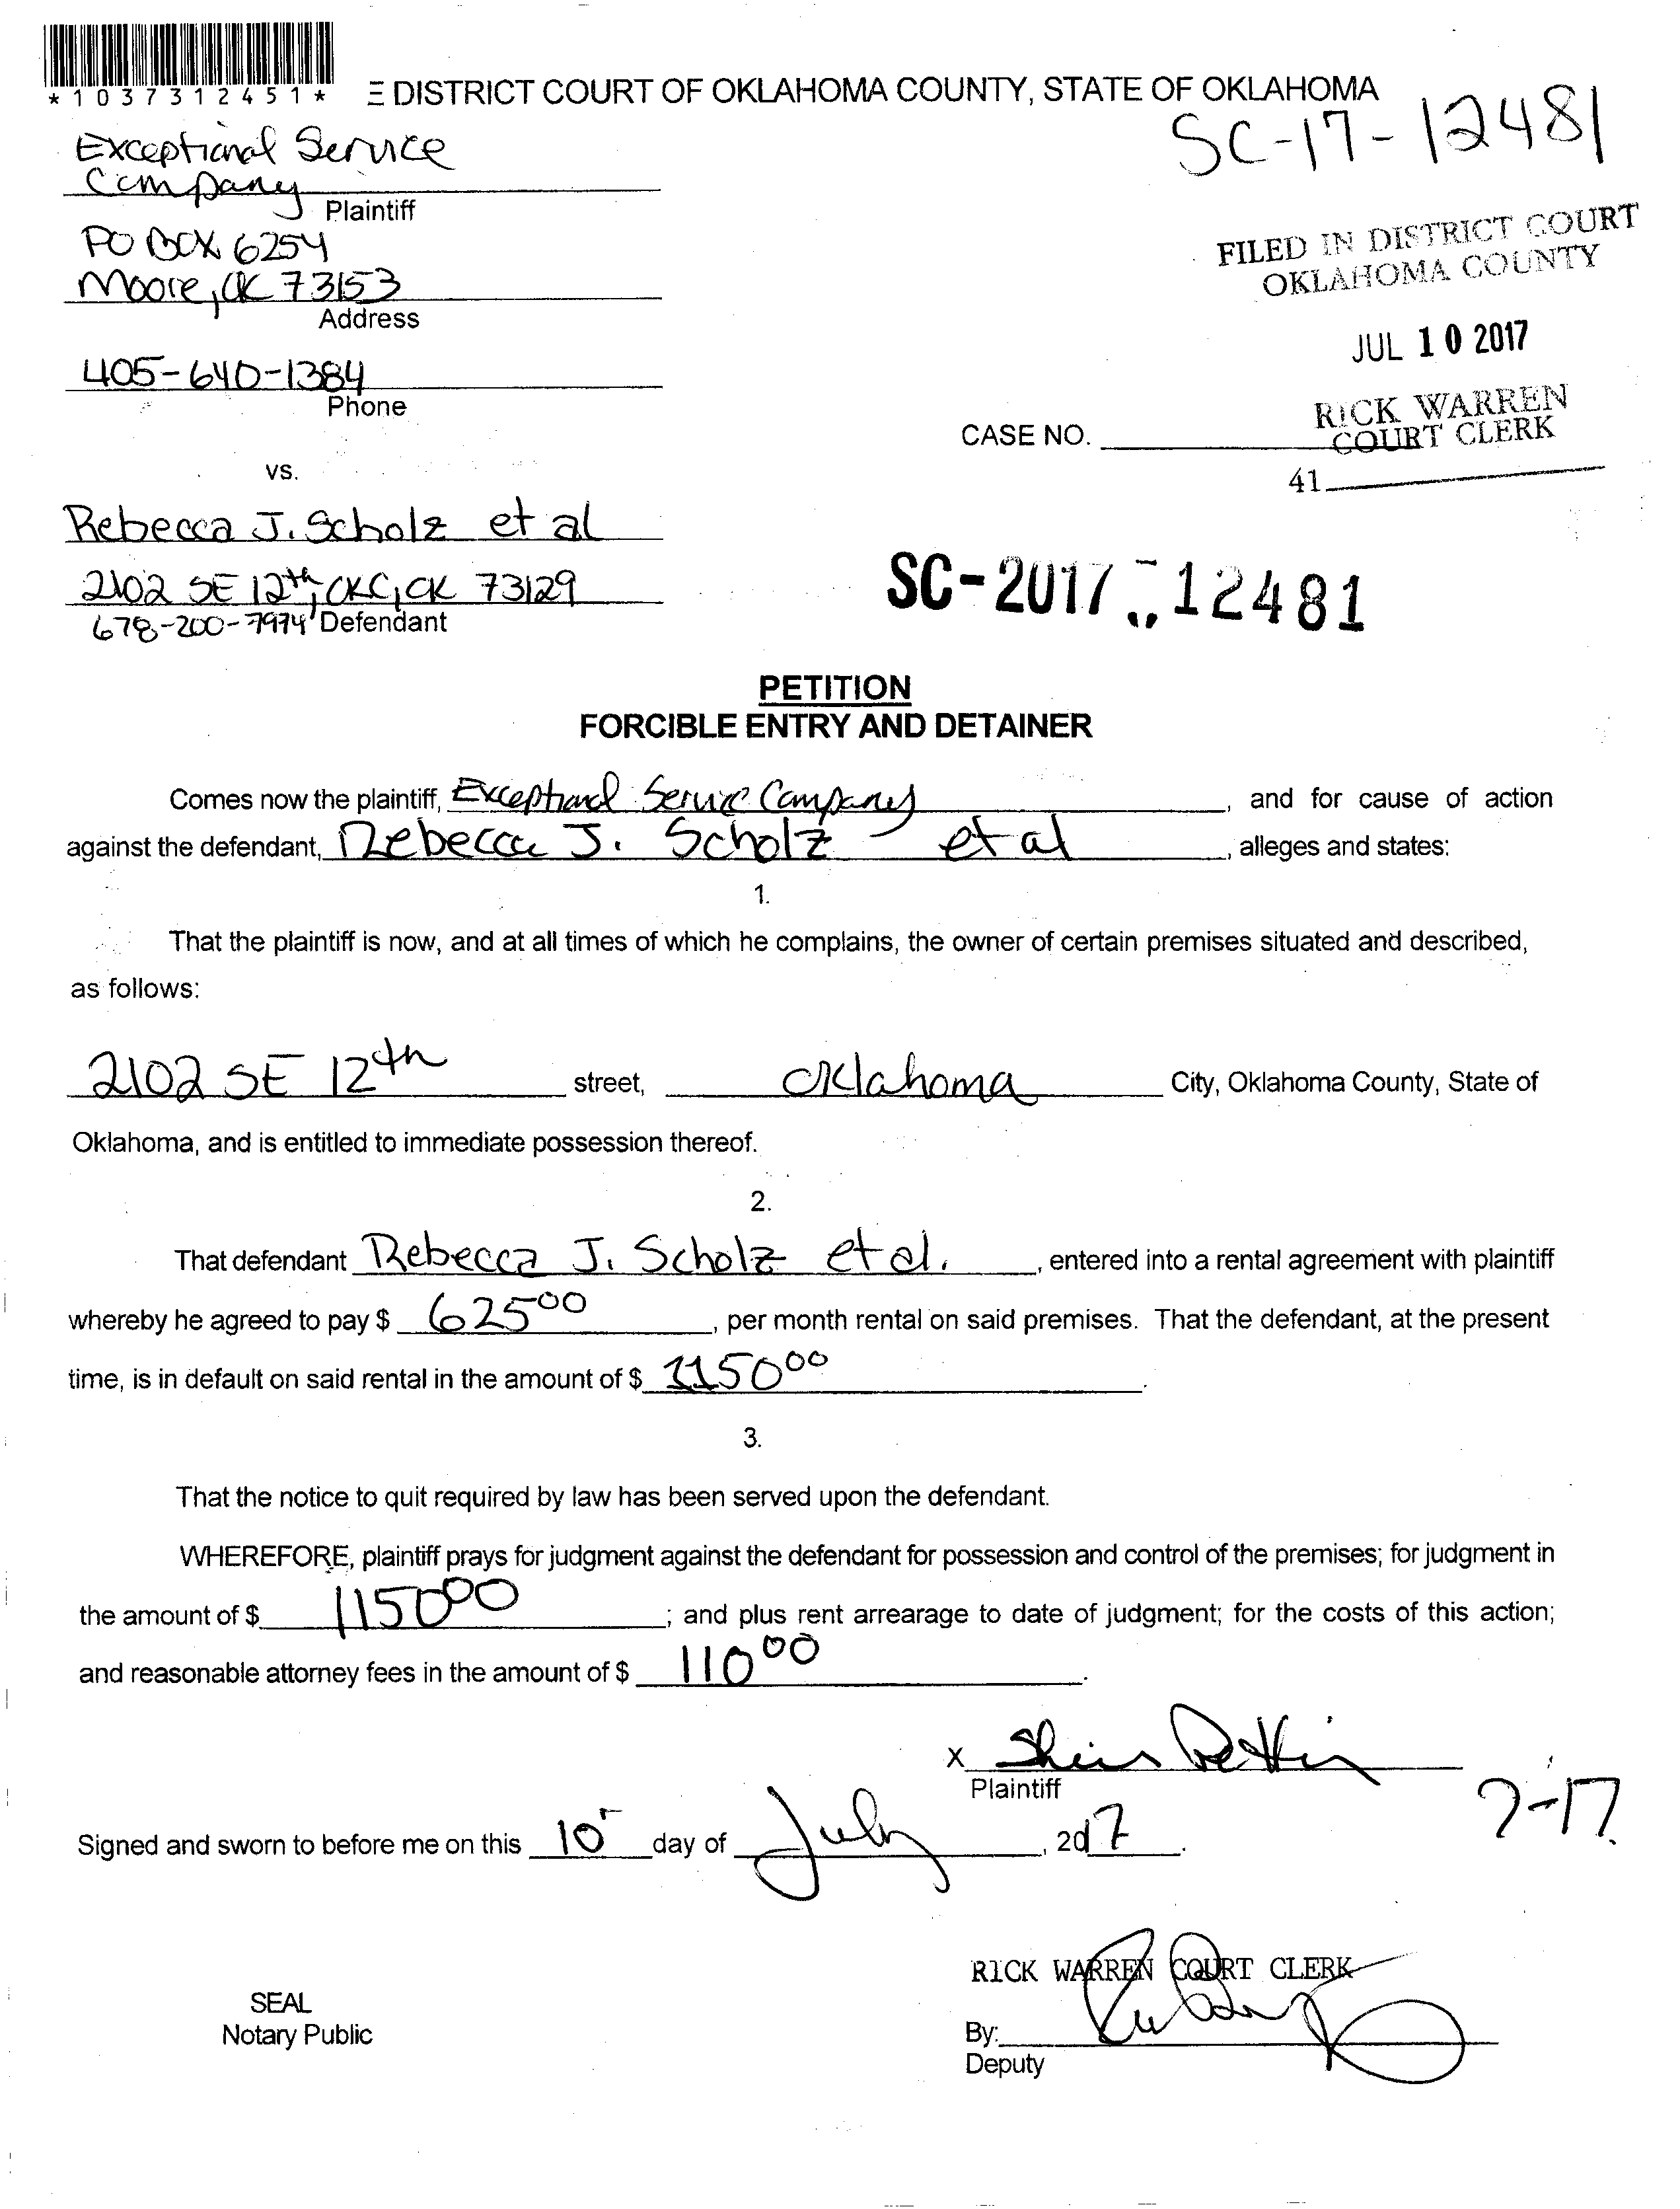 *1037312451*
E DISTRICT COURT OF OKLAHOMA COUNTY, STATE OF OKLAHOMA
SC-17-12481
Exceptional Service
Company
Plaintiff
PO BOX 6254
Moore, OK 73153
Address
405-640-1384
Phone
FILED IN DISTRICT COURT
OKLAHOMA COUNTY
JUL 10 2017
RICK WARREN
COURT CLERK
41
CASE NO.
vs.
Rebecca J. Scholz et al
2102 SE 12th, OKC, OK 73129
678-200-7974 Defendant
SC-2017-12481
PETITION
FORCIBLE ENTRY AND DETAINER
Comes now the plaintiff, Exceptional Service Company, and for cause of action
against the defendant, Rebecca J. Scholz et al, alleges and states:
1.
That the plaintiff is now, and at all times of which he complains, the owner of certain premises situated and described,
as follows:
2102 SE 12th street, Oklahoma City, Oklahoma County, State of
Oklahoma, and is entitled to immediate possession thereof.
2.
That defendant Rebecca J. Scholz et al., entered into a rental agreement with plaintiff
whereby he agreed to pay $ 625 00, per month rental on said premises. That the defendant, at the present
time, is in default on said rental in the amount of $ 1150 00.
3.
That the notice to quit required by law has been served upon the defendant.
WHEREFORE, plaintiff prays for judgment against the defendant for possession and control of the premises; for judgment in
the amount of $ 1150 00; and plus rent arrearage to date of judgment; for the costs of this action;
and reasonable attorney fees in the amount of $ 110 00.
X
Plaintiff
7-17
Signed and sworn to before me on this 10 day of July, 2017.
RICK WARREN COURT CLERK
SEAL
Notary Public
By:
Deputy